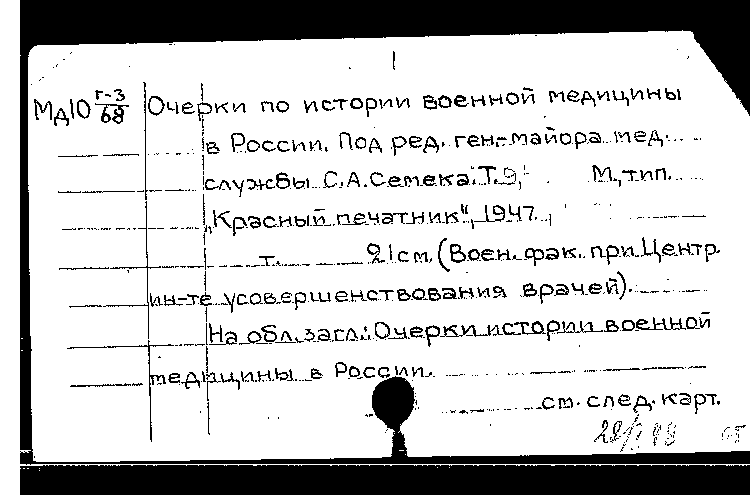 МД10 Г-3/68 Очерки по истории военной медицины
в России. Под ред. ген.-майора мед.
службы С.А.Семека. Т. М., тип.
"Красный печатник", 1947.
т. 21см. (Воен. фак. при Центр.
ин-те усовершенствования врачей).
На обл. загл.: Очерки истории военной
медицины в России.
см. след. карт.